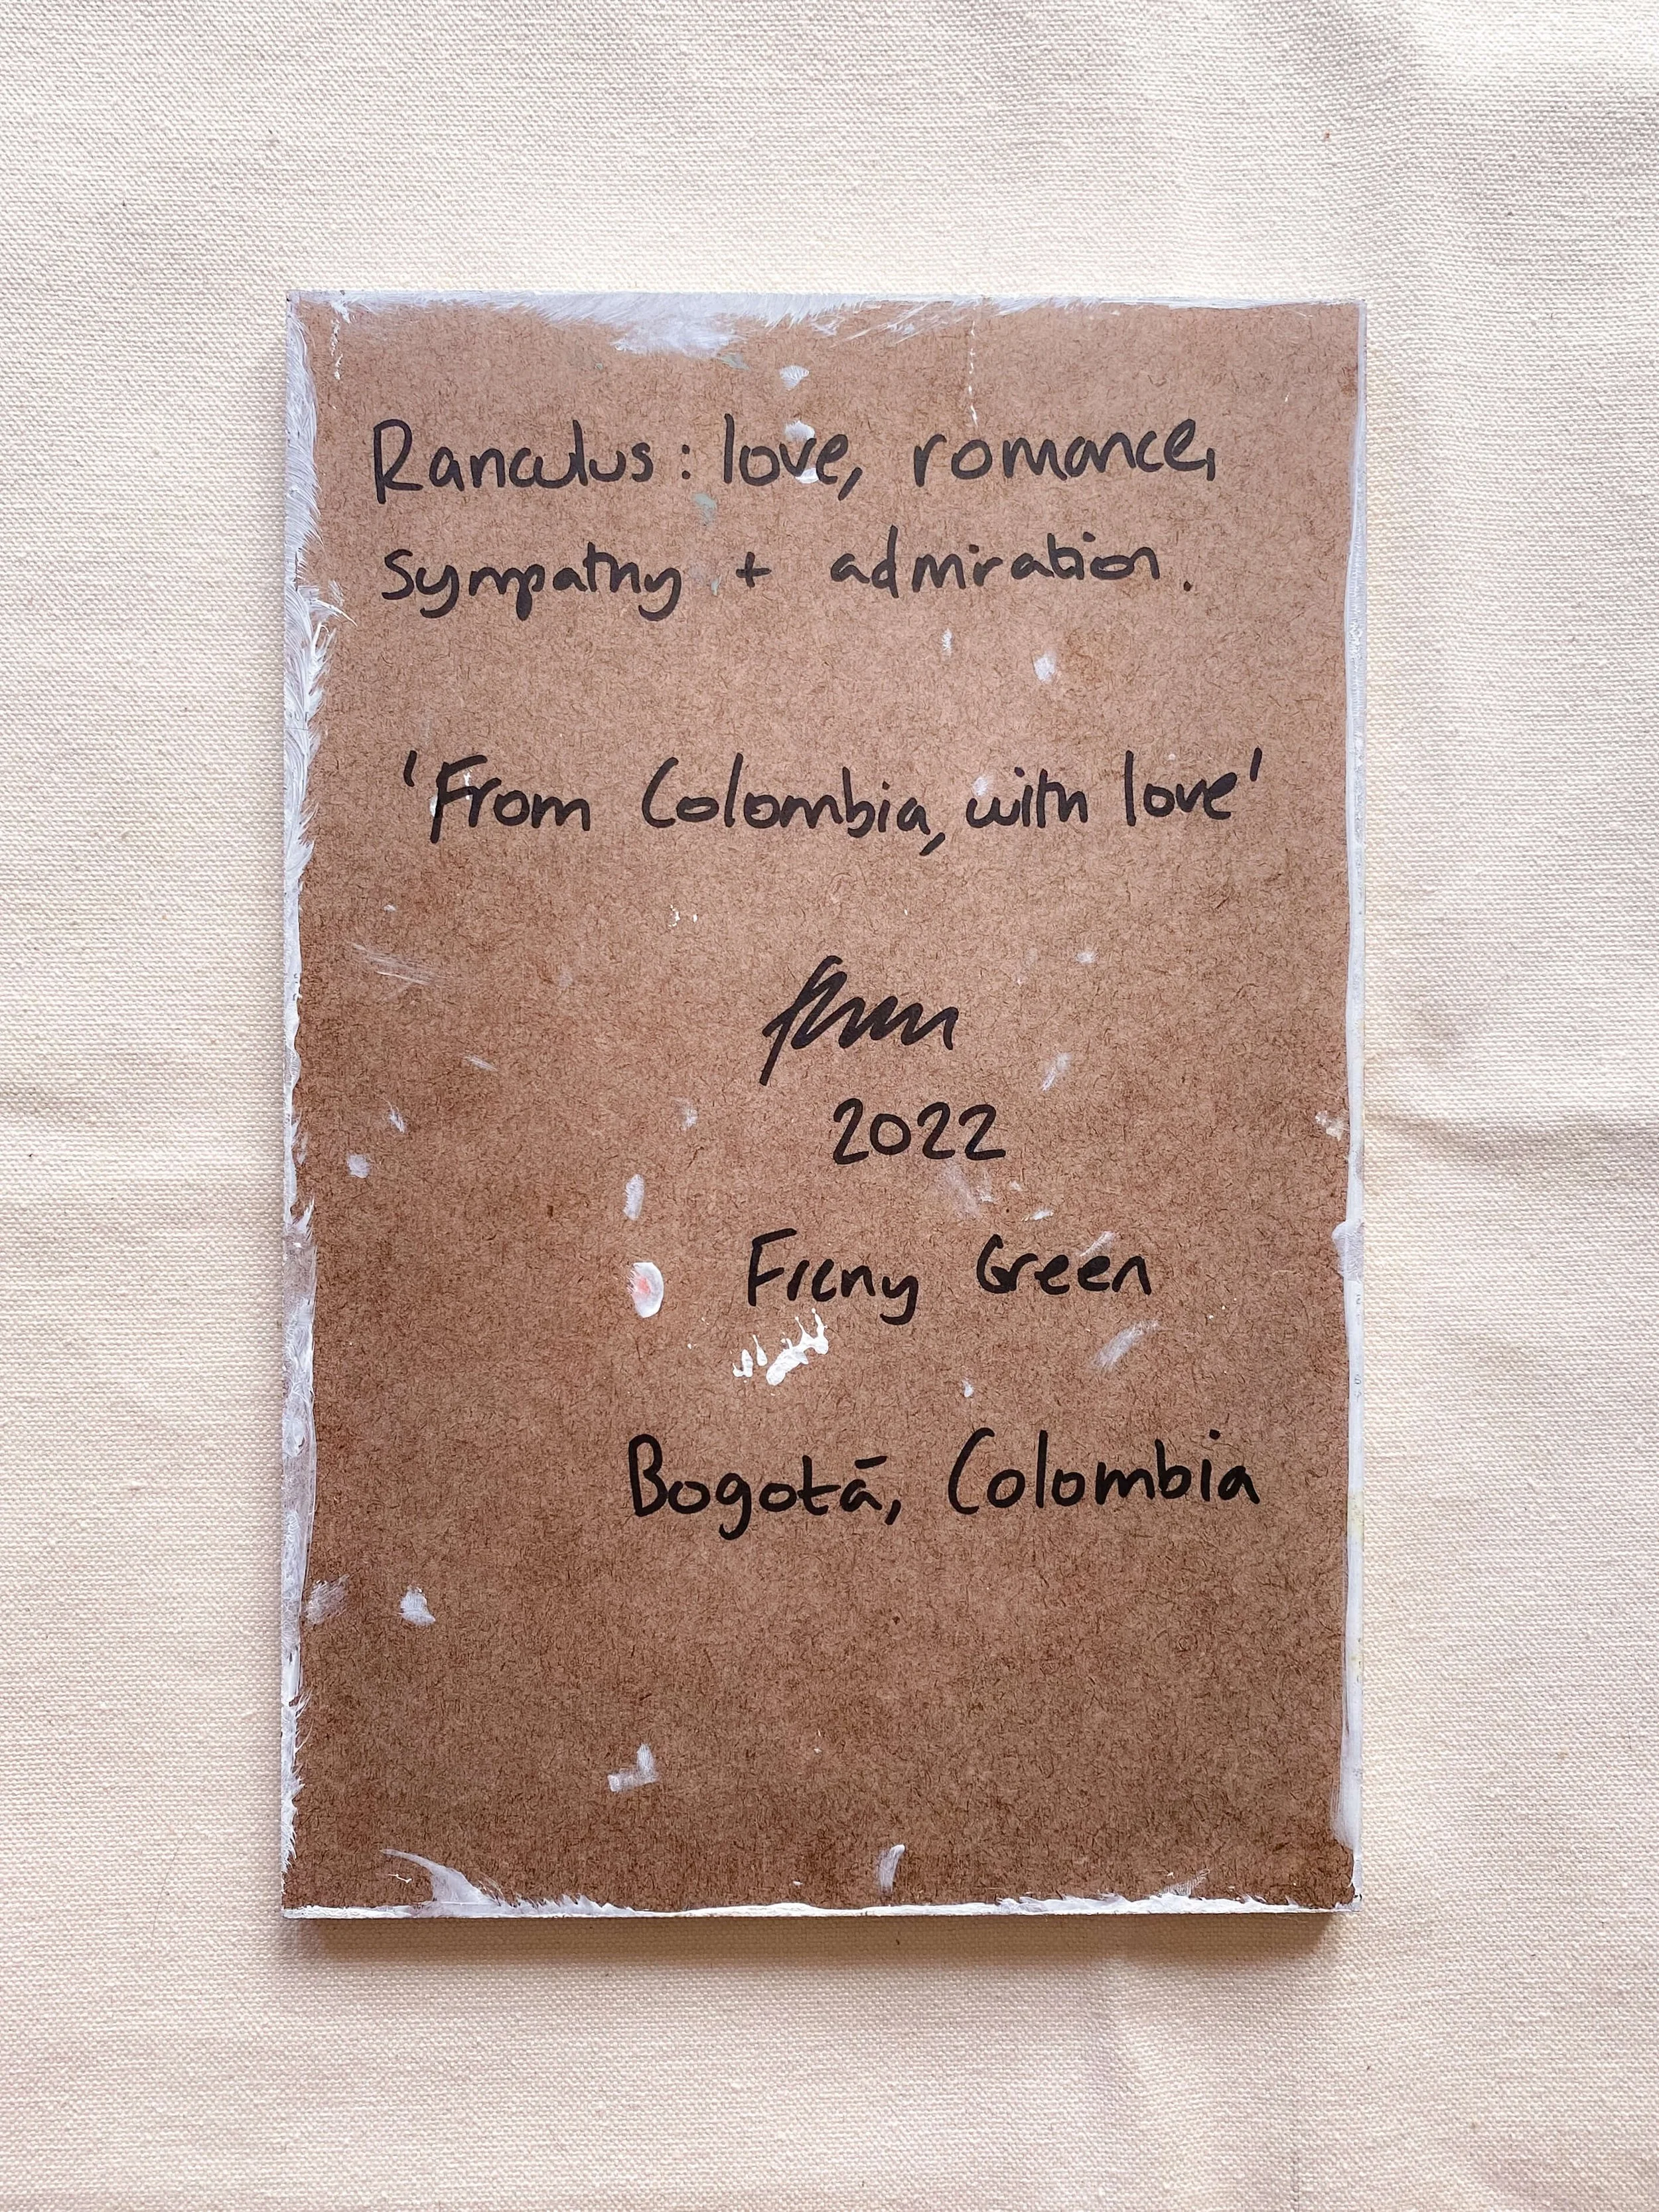 Ranculus: love, romance,
sympathy + admiration.
'From Colombia, with love'
2022
Green
Bogotá, Colombia